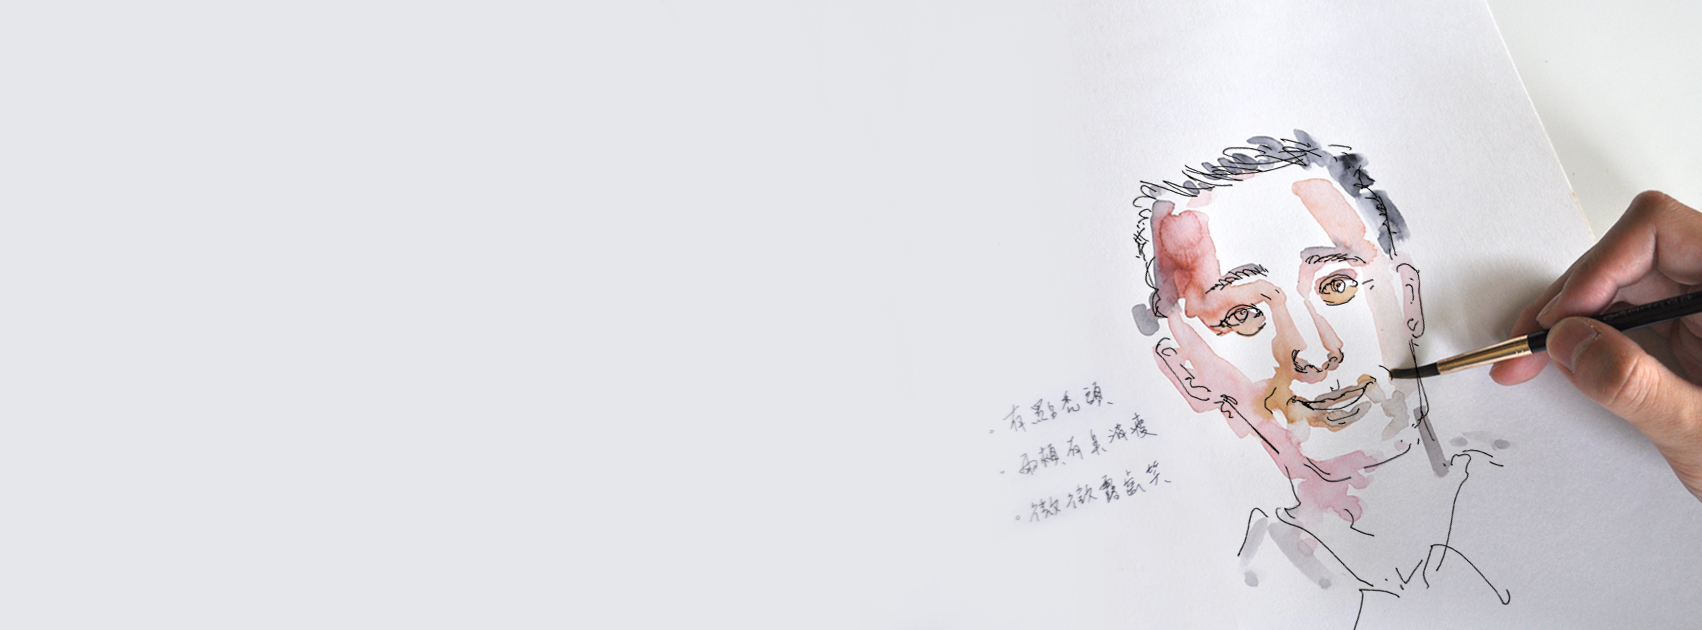 。有點禿頭、
。兩頰有臭消瘦
。微微露齒笑